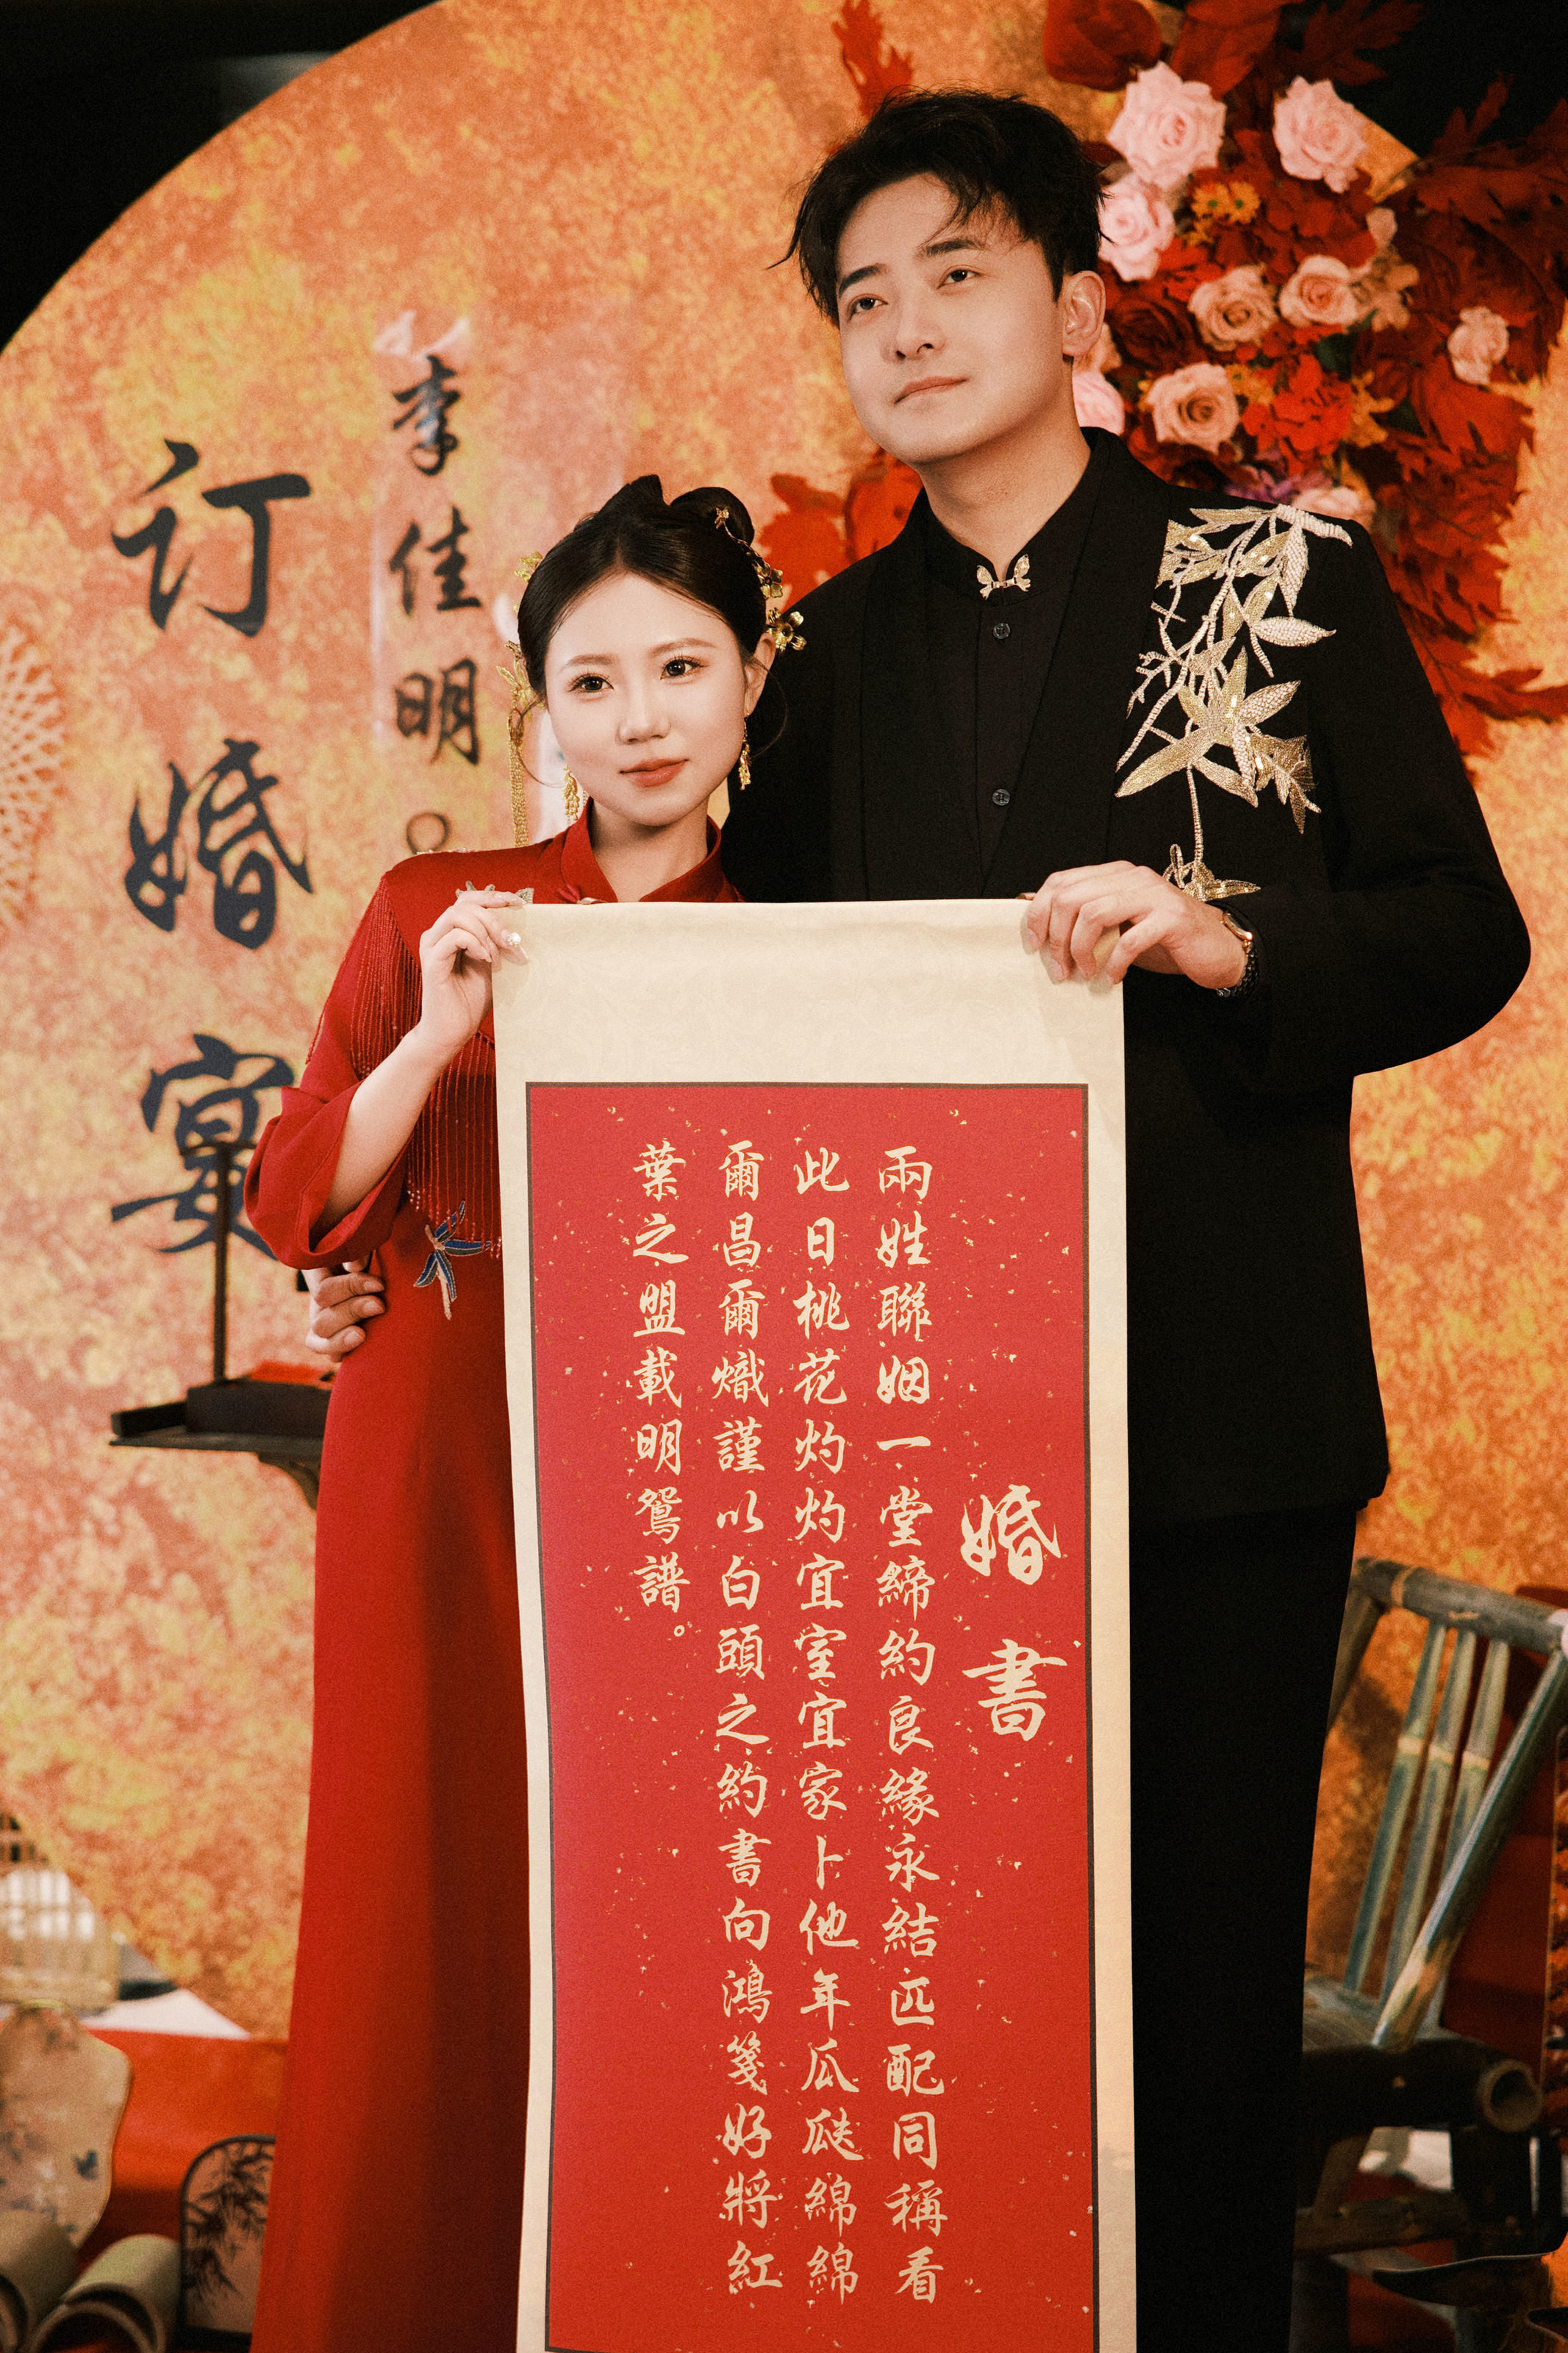 李佳明&
订婚宴
婚書
兩姓聯姻一堂締約良緣永結匹配同稱看
此日桃花灼灼宜室宜家卜他年瓜瓞綿綿
爾昌爾熾謹以白頭之約書向鴻箋好將紅
葉之盟載明鴛譜。